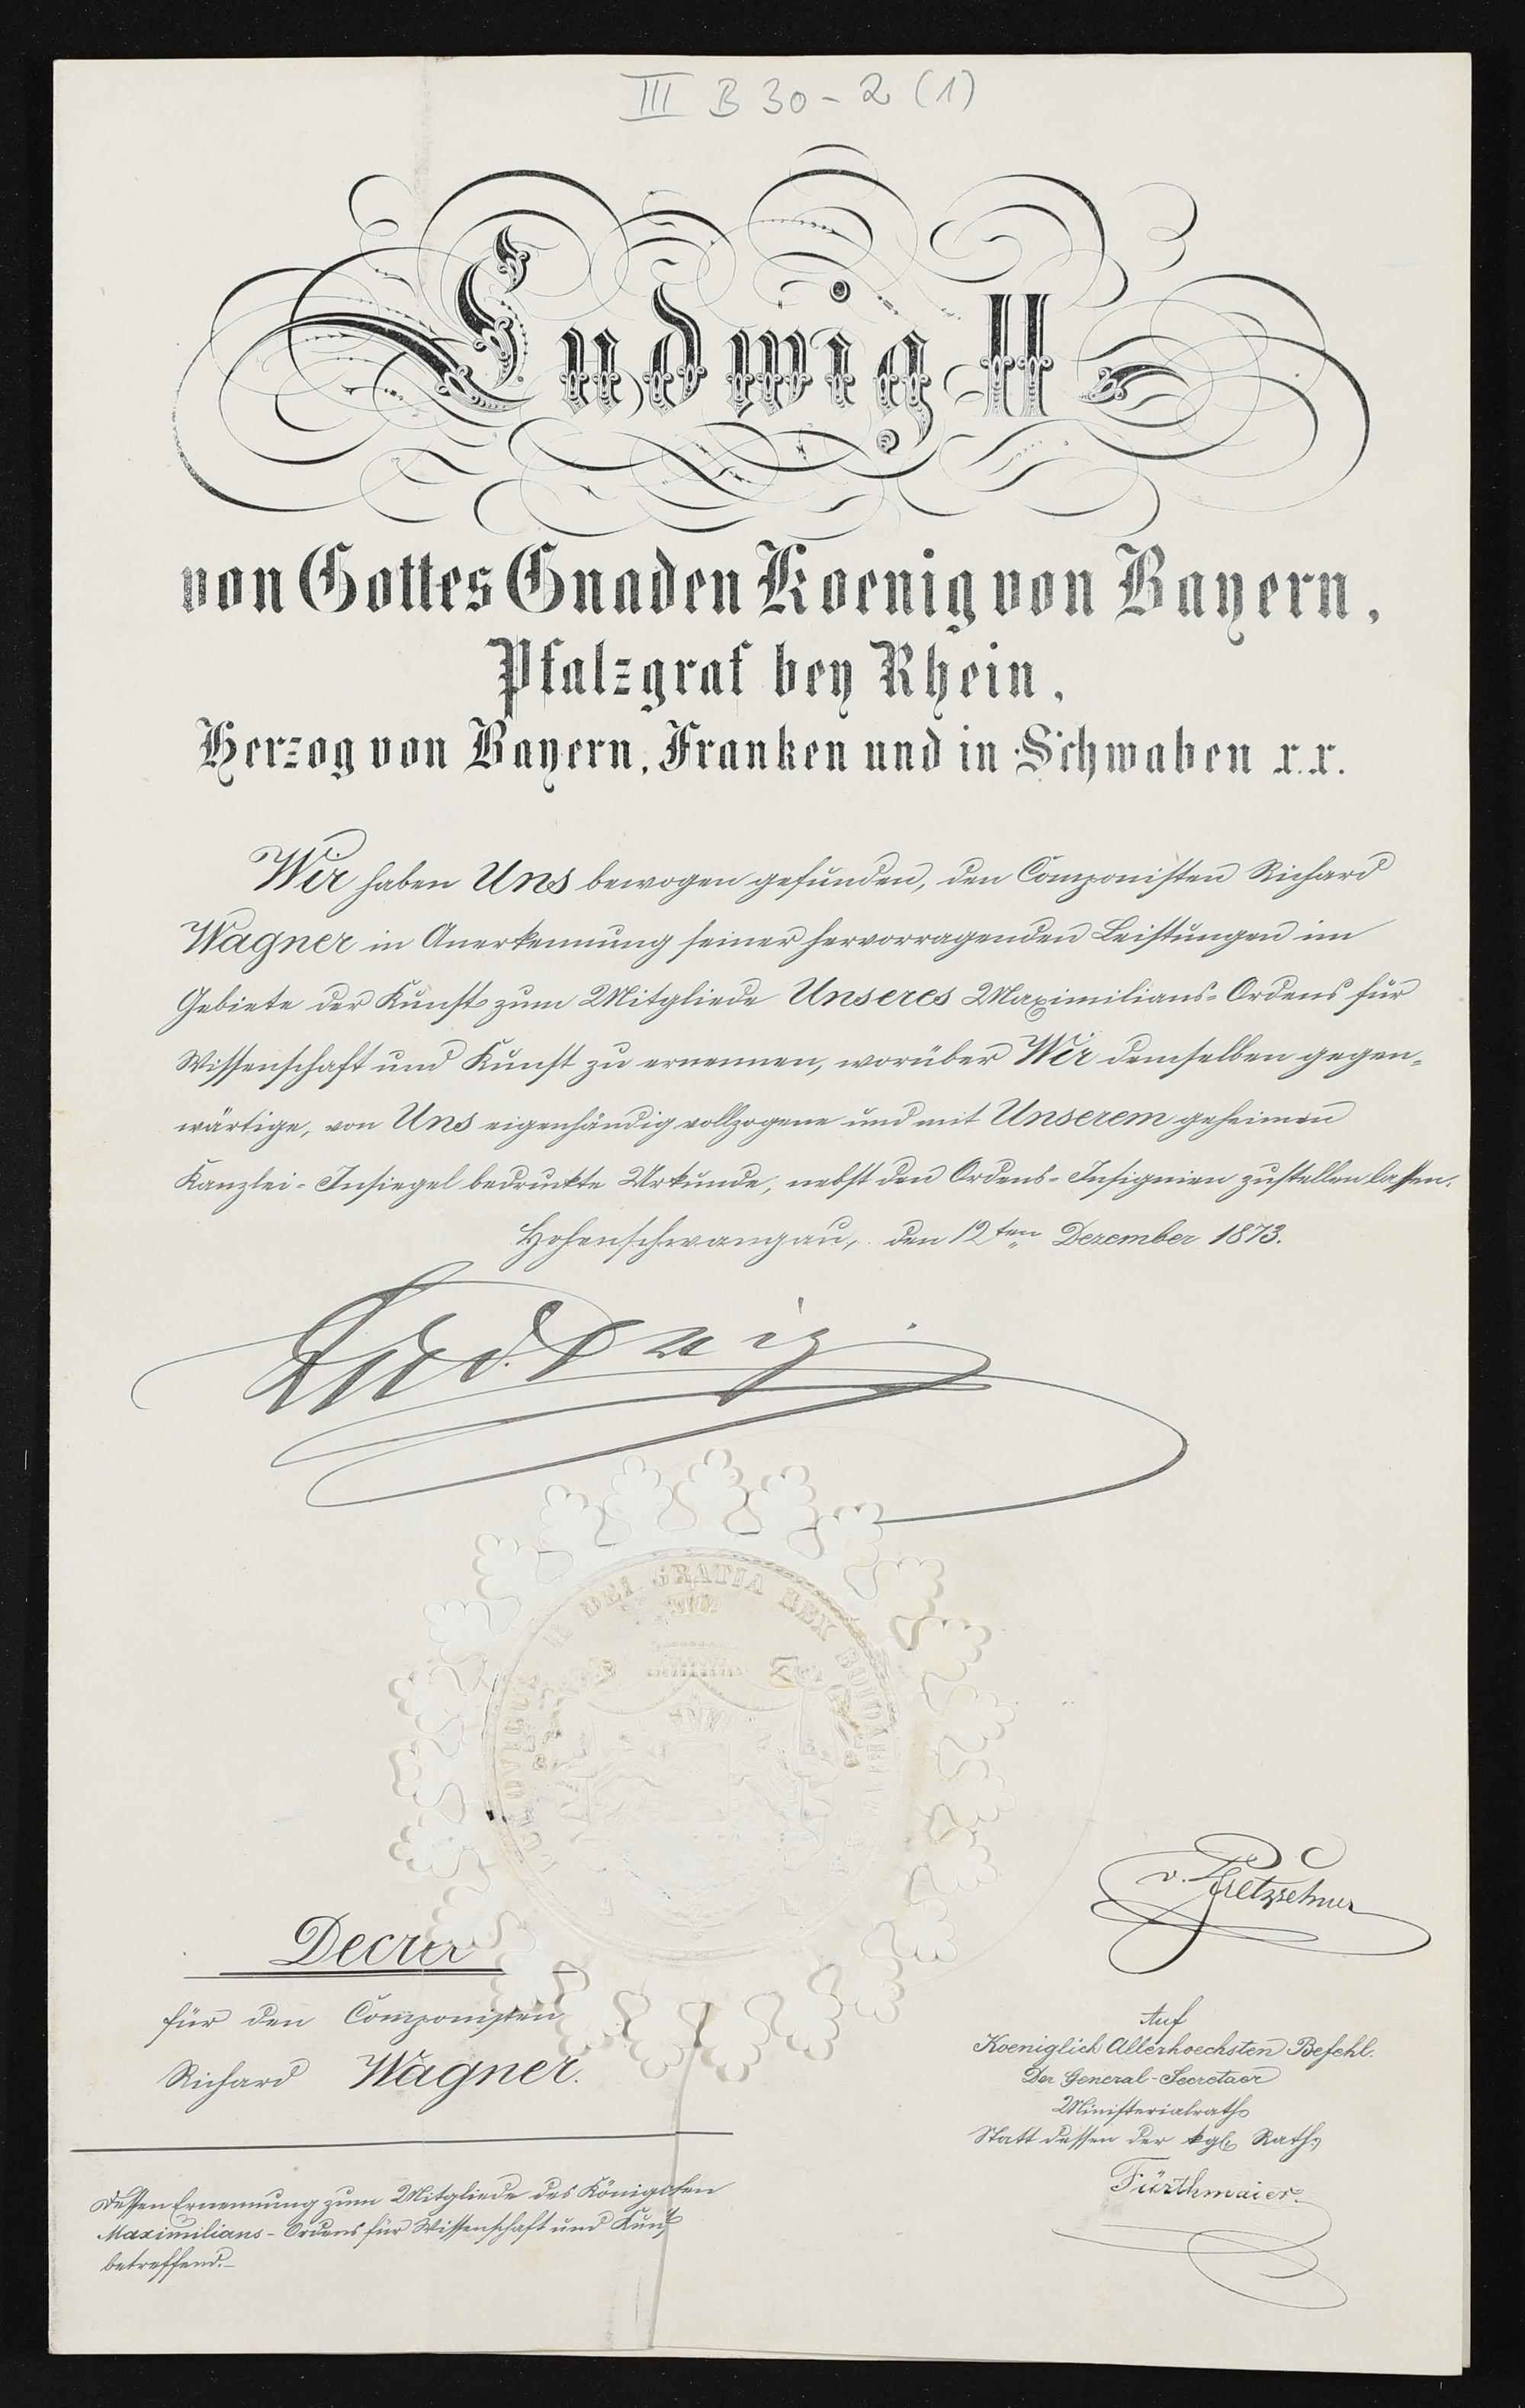 III B 30-2 (1)
Ludwig II
von Gottes Gnaden Koenig von Bayern,
Pfalzgraf bey Rhein,
Herzog von Bayern, Franken und in Schwaben x.x.
Wir haben Uns bewogen gefunden, den Componisten Richard
Wagner in Anerkennung seiner hervorragenden Leistungen im
Gebiete der Kunst zum Mitgliede Unseres Maximilians-Ordens für
Wissenschaft und Kunst zu ernennen, worüber Wir demselben gegen-
wärtige, von Uns eigenhändig vollzogene und mit Unserem geheimen
Kanzlei-Insiegel bedruckte Urkunde, nebst den Ordens-Insignien zustellen lassen.
Hohenschwangau, den 12ten Dezember 1873.
Ludwig.
LUDOVICUS II DEI GRATIA REX BOIOARIAE
v. Pfretzschner
Decret
für den Componisten
Richard Wagner.
Dessen Ernennung zum Mitgliede des Königlichen
Maximilians-Ordens für Wissenschaft und Kunst
betreffend.-
Auf
Koeniglich Allerhoechsten Befehl.
Der General-Secretaer
Ministerialrath
Statt dessen der kgl. Rath:
Fürthmaier.